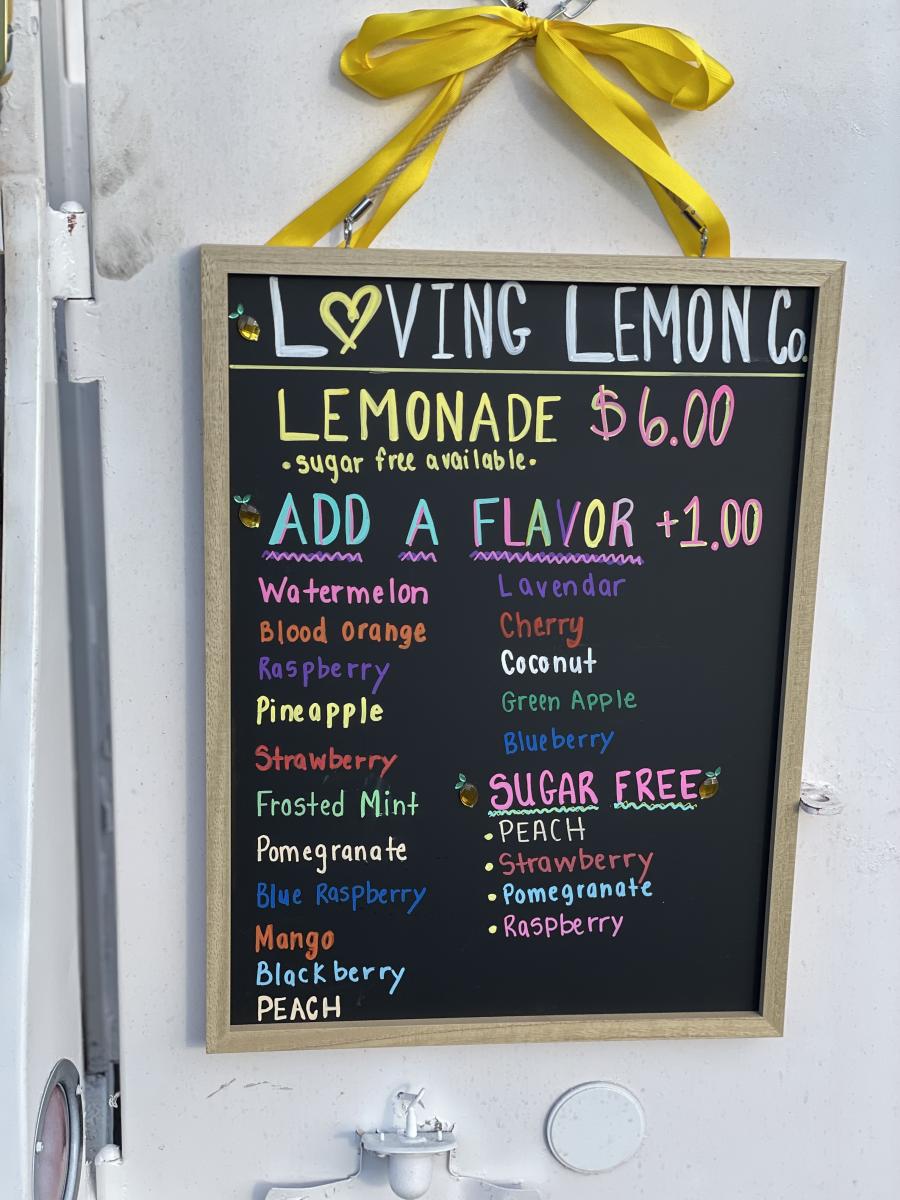 LOVING LEMON Co.
LEMONADE $6.00
•sugar free available•
ADD A FLAVOR +1.00
Watermelon
Blood Orange
Raspberry
Pineapple
Strawberry
Frosted Mint
Pomegranate
Blue Raspberry
Mango
Blackberry
PEACH
Lavendar
Cherry
Coconut
Green Apple
Blueberry
SUGAR FREE
• PEACH
• Strawberry
• Pomegranate
• Raspberry